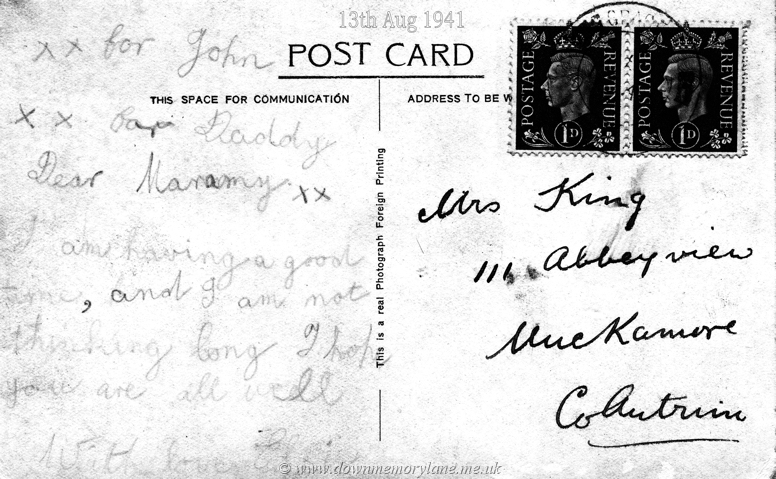 13th Aug 1941
POST CARD
THIS SPACE FOR COMMUNICATION
ADDRESS TO BE W
POSTAGE
REVENUE
1D
POSTAGE
REVENUE
1D
x x for John
x x for Daddy
Dear Mammy xx
I am having a good
time, and I am not
thinking long I hope
you are all well
With love
This is a real Photograph Foreign Printing
Mrs King
111 Abbeyview
Muckamore
Co Antrim
© www.downmemorylane.me.uk